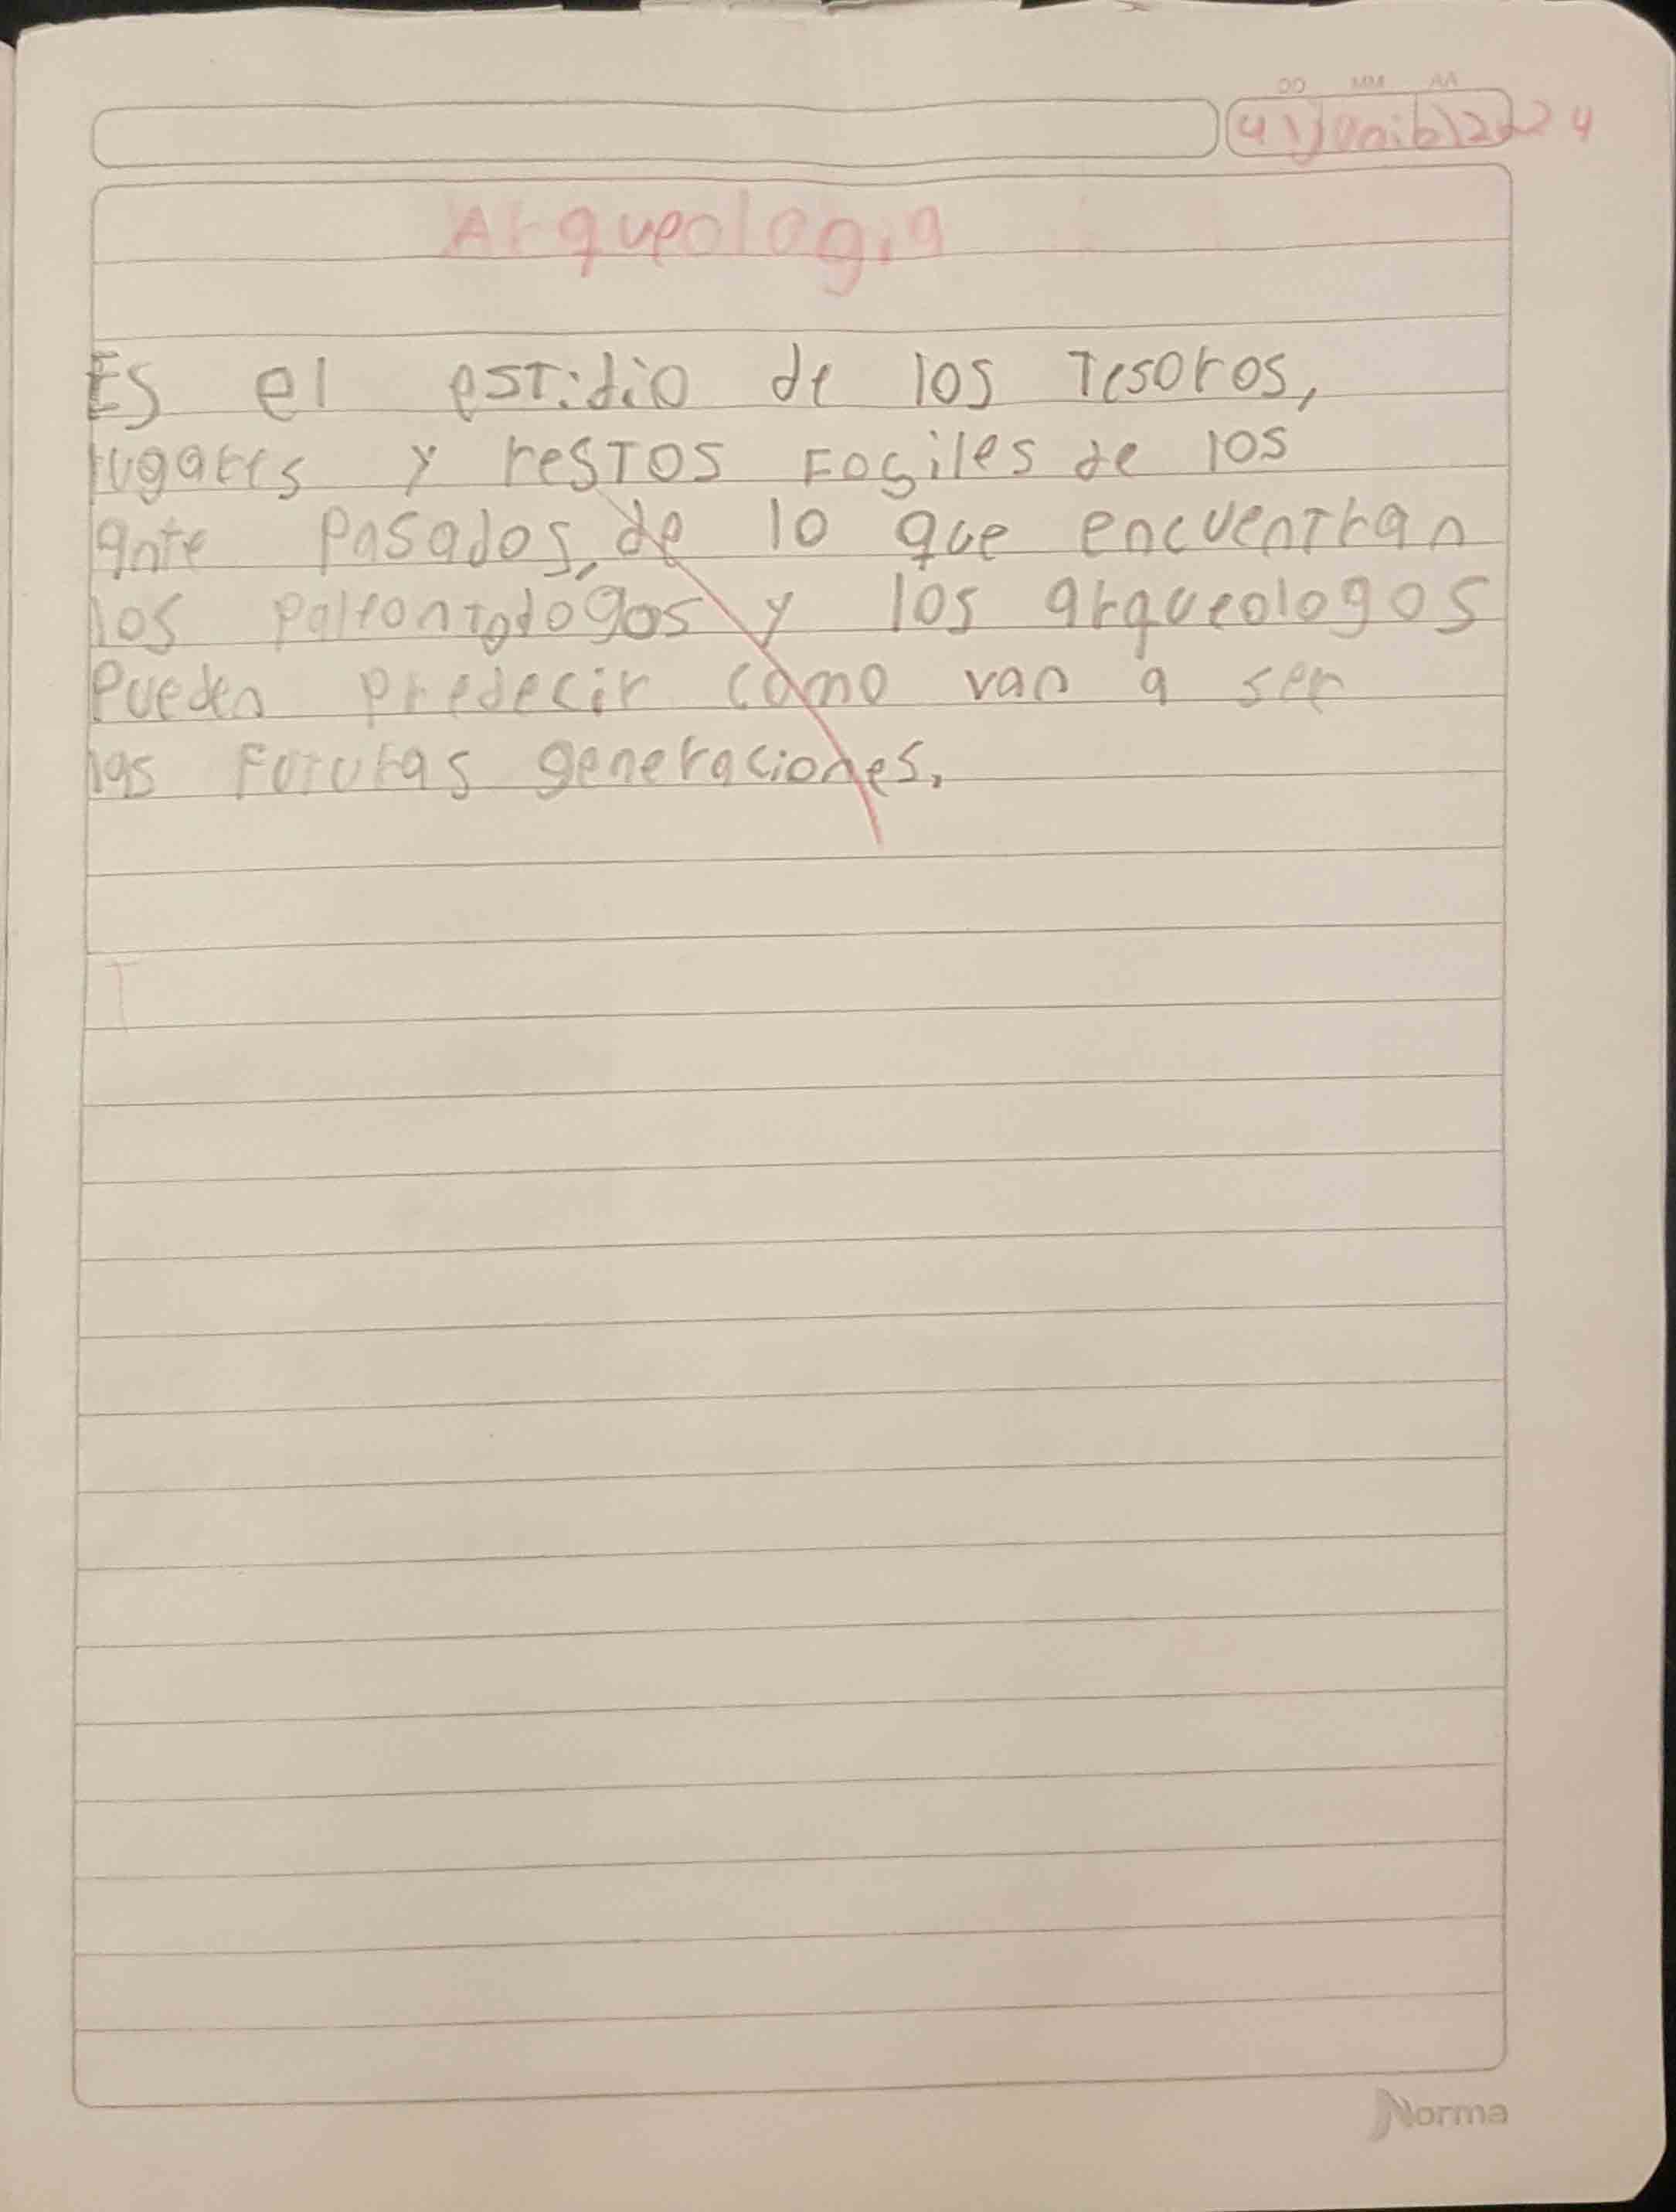 DD MM AA
4 junio 2024
Arqueologia
Es el estidio de los Tesoros,
lugares y resTOS FOSiles de los
ante pasados, de lo que encuentran
los paleontologos y los arqueologos
Pueden predecir como van a ser
las Foturas generaciones.
T
Norma